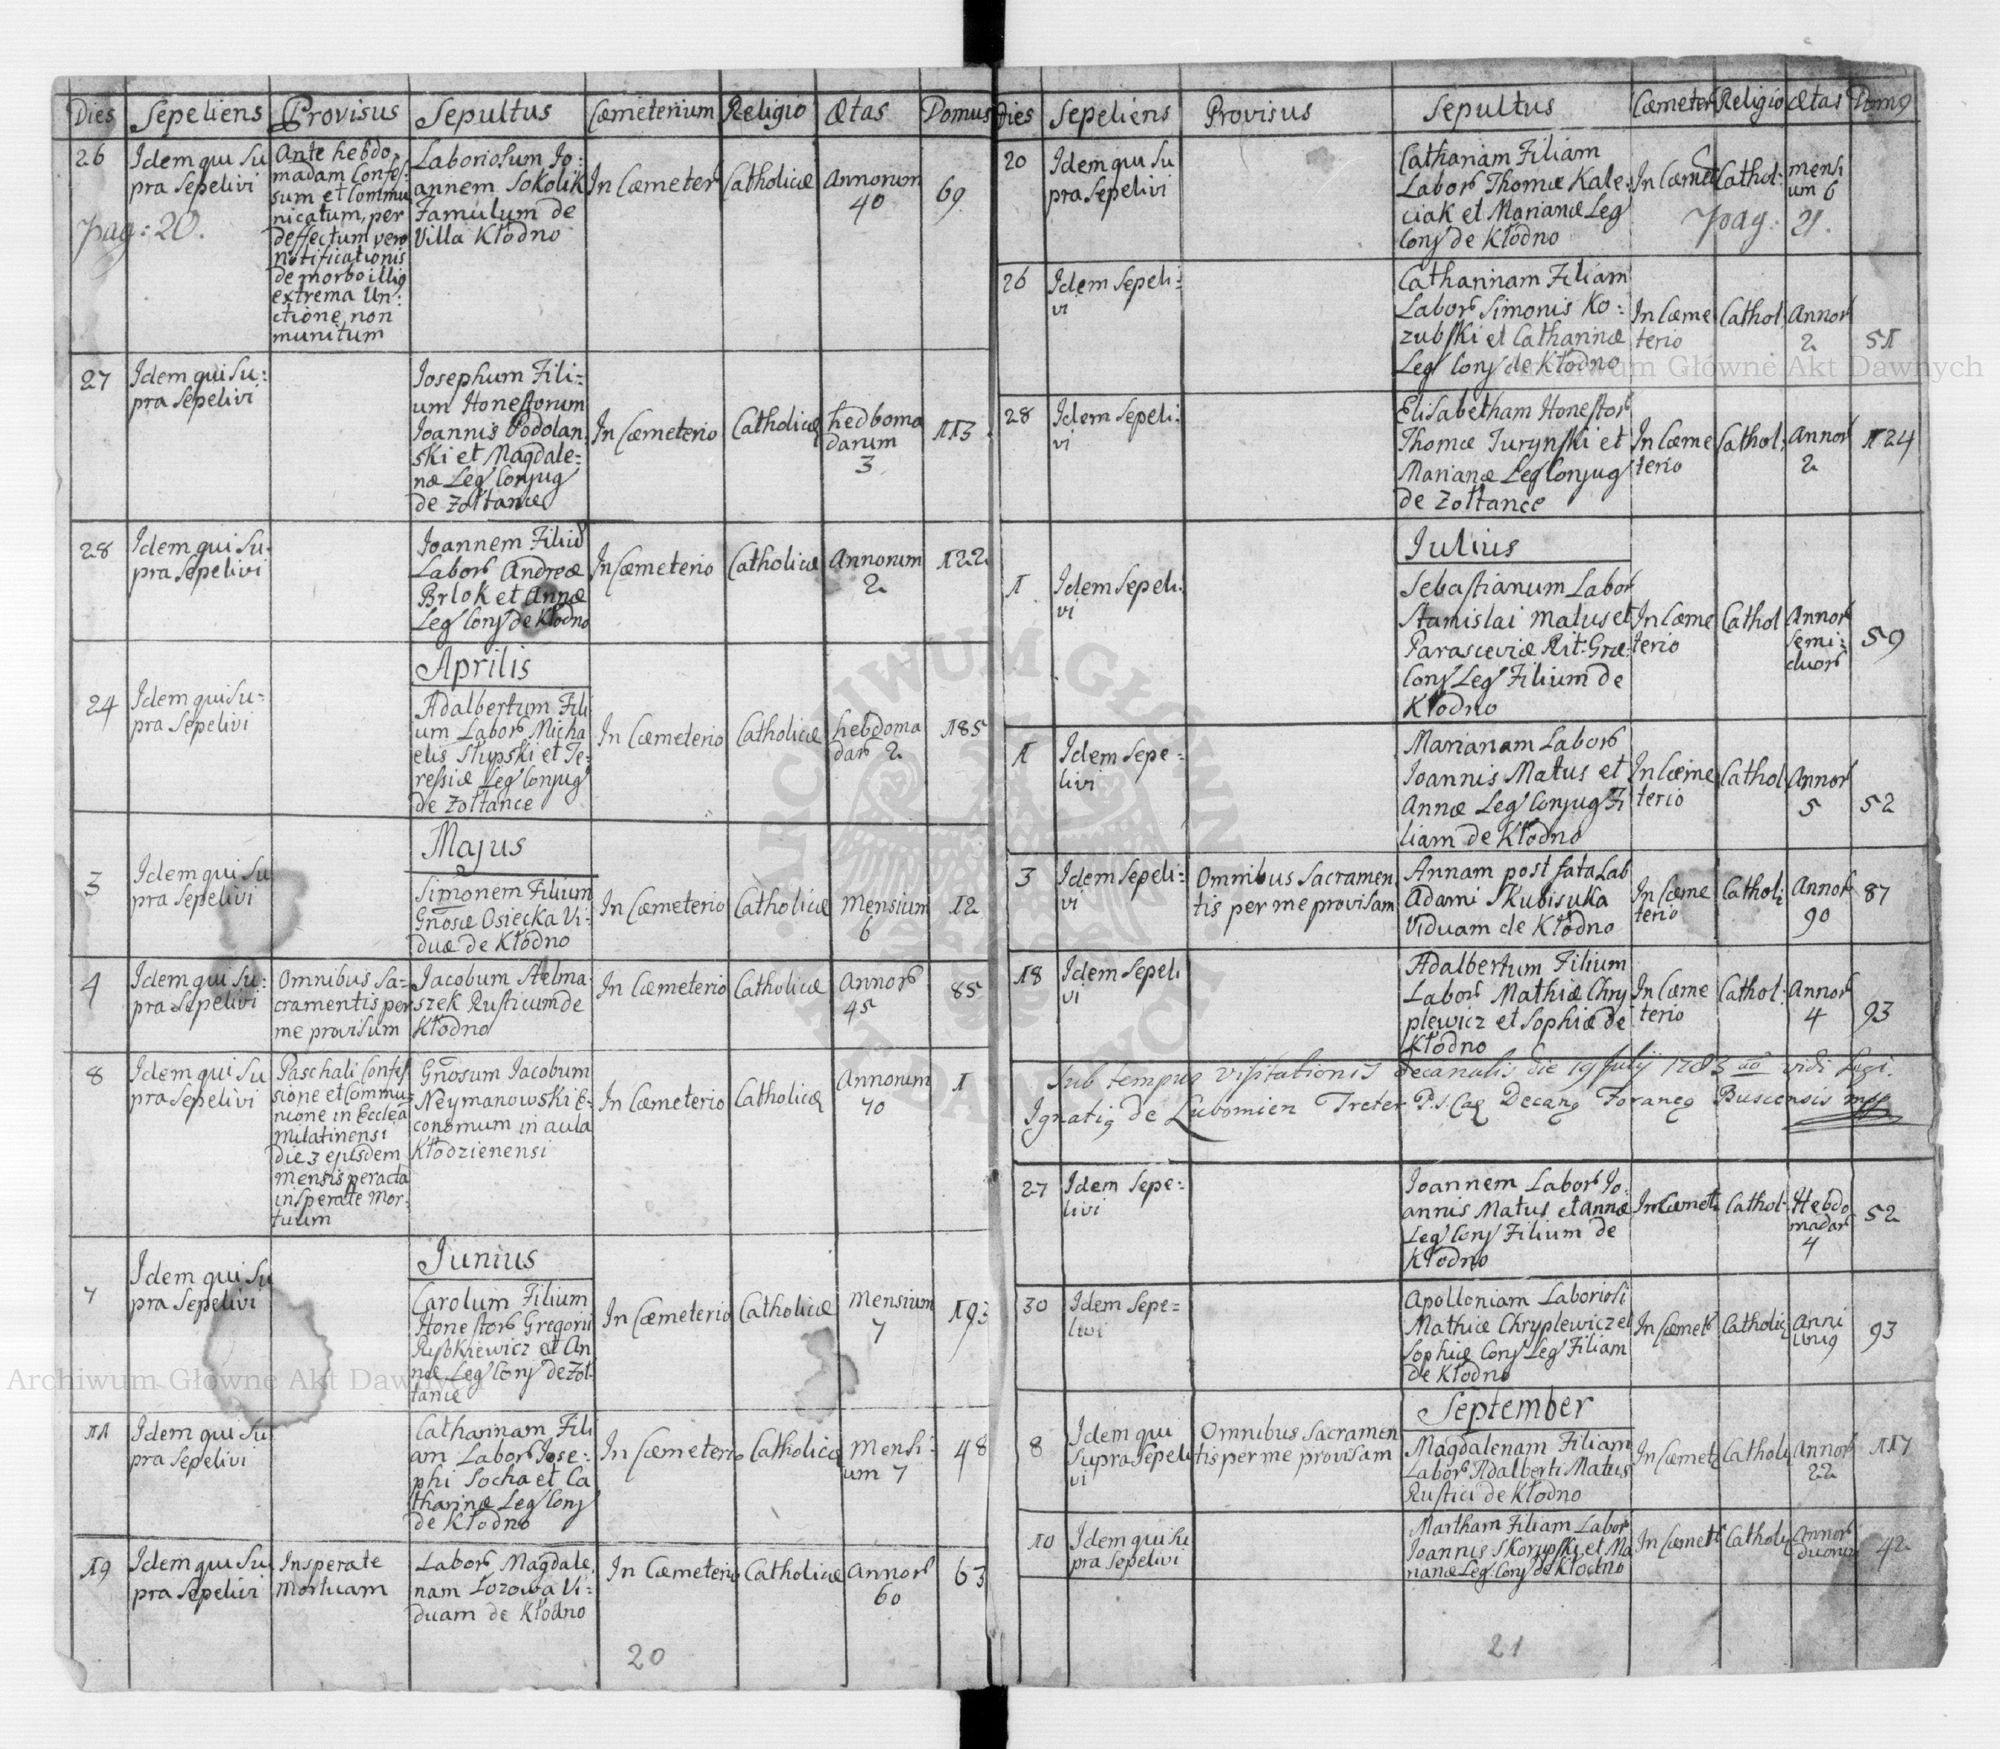 Dies Sepeliens Provisus Sepultus Cæmeterium Religio Ætas Domus
26
Idem qui Su
pra Sepelivi
pag: 20.
Ante hebdo
madam Confes
sum et Commu
nicatum, per
deffectum vero
notificationis
de morbo illig
extrema Un:
ctione, non
munitum
Laboriosum Jo:
annem Sokolik
Famulum de
Villa Kłodno
In Cæmeter
Catholicæ
Annorum
40
69
27
Idem qui Su:
pra Sepelivi
Josephum Fili=
um Honestorum
Joannis Podolan
ski et Magdale=
næ Leg Conjug
de Zołtance
In Cæmeterio
Catholicæ
hedboma
darum
3
113
28
Idem qui Su.
pra Sepelivi
Joannem Filiū
Labor Andreæ
Brlok et Annæ
Leg Conj de Kłodno
In Cæmeterio
Catholicæ
Annorum
2
122
Aprilis
24
Idem qui Su=
pra Sepelivi
Adalbertum Fili
um Labor Micha
elis Słupski et Te=
ressiæ Leg Conjug
de Zołtance
In Cæmeterio
Catholicæ
hebdoma
dar 2
185
Majus
3
Idem qui Su
pra Sepelivi
Simonem Filium
Gnosæ Osiecka Vi=
duæ de Kłodno
In Cæmeterio
Catholicæ
Mensium
6
12
4
Idem qui Su:
pra Sepelivi
Omnibus Sa=
cramentis per
me provisum
Jacobum Stelma
szek Rusticum de
Kłodno
In Cæmeterio
Catholicæ
Annor
45
85
8
Idem qui Su
pra Sepelivi
Paschali Confes
sione et Commu=
nione in Eccleā
Milatinensi
die 3 ejusdem
mensis peracta
insperate mor=
tuum
Gnosum Jacobum
Neymanowski E=
conomum in aula
Kłodzienensi
In Cæmeterio
Catholicæ
Annorum
40
1
Junius
7
Idem qui Su
pra Sepelivi
Carolum Filium
Honestor Gregorii
Ruskiewicz et An
næ Leg Conj de Zoł
tance
In Cæmeterio
Catholicæ
Mensium
7
193
11
Idem qui Su
pra Sepelivi
Catharinam Fili
am Labor Jose=
phi Socha et Ca
tharinæ Leg Conj
de Kłodno
In Cæmeterio
Catholicæ
Mensi=
um 7
48
19
Idem qui Su
pra Sepelivi
Insperate
Mortuam
Labor Magdale
nam Lozowa Vi=
duam de Kłodno
In Cæmeterio
Catholicæ
Annor
60
63
20
Dies Sepeliens Provisus Sepultus Cæmeter Religio Ætas Domg
20
Idem qui Su
pra Sepelivi
Cathariam Filiam
Labor Thomæ Kale
ciak et Marianæ Leg
Conj de Kłodno
In Cæmet
Cathol:
mensi
um 6
pag: 21.
26
Idem Sepeli=
vi
Catharinam Filiam
Labor Simonis Ko=
zubski et Catharinæ
Leg Conj de Kłodno
In Cæme
terio
Cathol.
Annor
2
51
28
Idem Sepeli.
vi
Elisabetham Honestor
Thomæ Turynski et
Marianæ Leg Conjug
de Zołtance
In Cæme
terio
Cathol.
Annor
2
124
Julius
1
Idem Sepeli.
vi
Sebastianum Labor
Stanislai Matus et
Parasceviæ Rit: Græ
Conj Leg Filium de
Kłodno
In Cæme
terio
Cathol
Annor
Semi=
duor
59
1
Idem Sepe=
livi
Marianam Labor
Joannis Matus et
Annæ Leg Conjug Fi
liam de Kłodno
In Cæme
terio
Cathol
Annor
5
52
3
Idem Sepeli=
vi
Omnibus Sacramen
tis per me provisam
Annam post fata Lab
Adami Skubisuka
Viduam de Kłodno
In Cæme
terio
Catholi
Annor
90
87
18
Idem Sepeli
vi
Adalbertum Filium
Labor Mathiæ Chry
plewicz et Sophiæ de
Kłodno
In Cæme
terio
Cathol:
Annor
4
93
Sub tempus visitationis Decanalis die 19 Julij 1783 vidi Legi.
Ignatig de Lubomien Treter Decang Foraneg Buscensis mpp
27
Idem Sepe=
livi
Joannem Labor Jo:
annis Matus et Annæ
Leg Conj Filium de
Kłodno
In Cæmet
Cathol
Hebdo
madar
4
52
30
Idem Sepe=
livi
Apolloniam Laboriosi
Mathiæ Chryplewicz et
Sophiæ Conj Leg Filiam
de Kłodno
In Cæmet
Catholic
Anni
unig
93
September
8
Idem qui
Supra Sepeli
vi
Omnibus Sacramen
tis per me provisam
Magdalenam Filiam
Labor Adalberti Matus
Rustici de Kłodno
In Cæmet
Catholi
Annor
22
117
10
Idem qui Su
pra Sepelivi
Martham Filiam Labor
Joannis Skorupski et Ma
rianæ Leg: Conj de Kłodno
In Cæmet
Catholi
Annor
duorum
42
21
Archiwum Główne Akt Dawnych
Archiwum Główne Akt Dawnych
ARCHIWUM GŁÓWNE AKT DAWNYCH